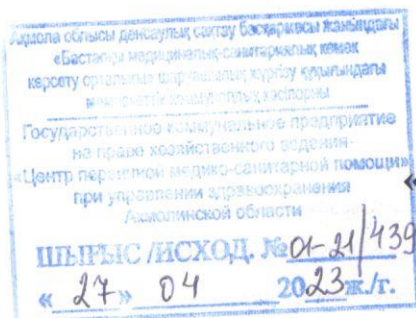 Ақмола облысы денсаулық сақтау басқармасы жанындағы
«Бастапқы медициналық-санитариялық көмек
көрсету орталығы» шаруашылық жүргізу құқығындағы
мемлекеттік коммуналдық кәсіпорны
Государственное коммунальное предприятие
на праве хозяйственного ведения
«Центр первичной медико-санитарной помощи»
при управлении здравоохранения
Акмолинской области
ШЫҒЫС /ИСХОД. №01-21/439
« 27» 04 2023ж./г.